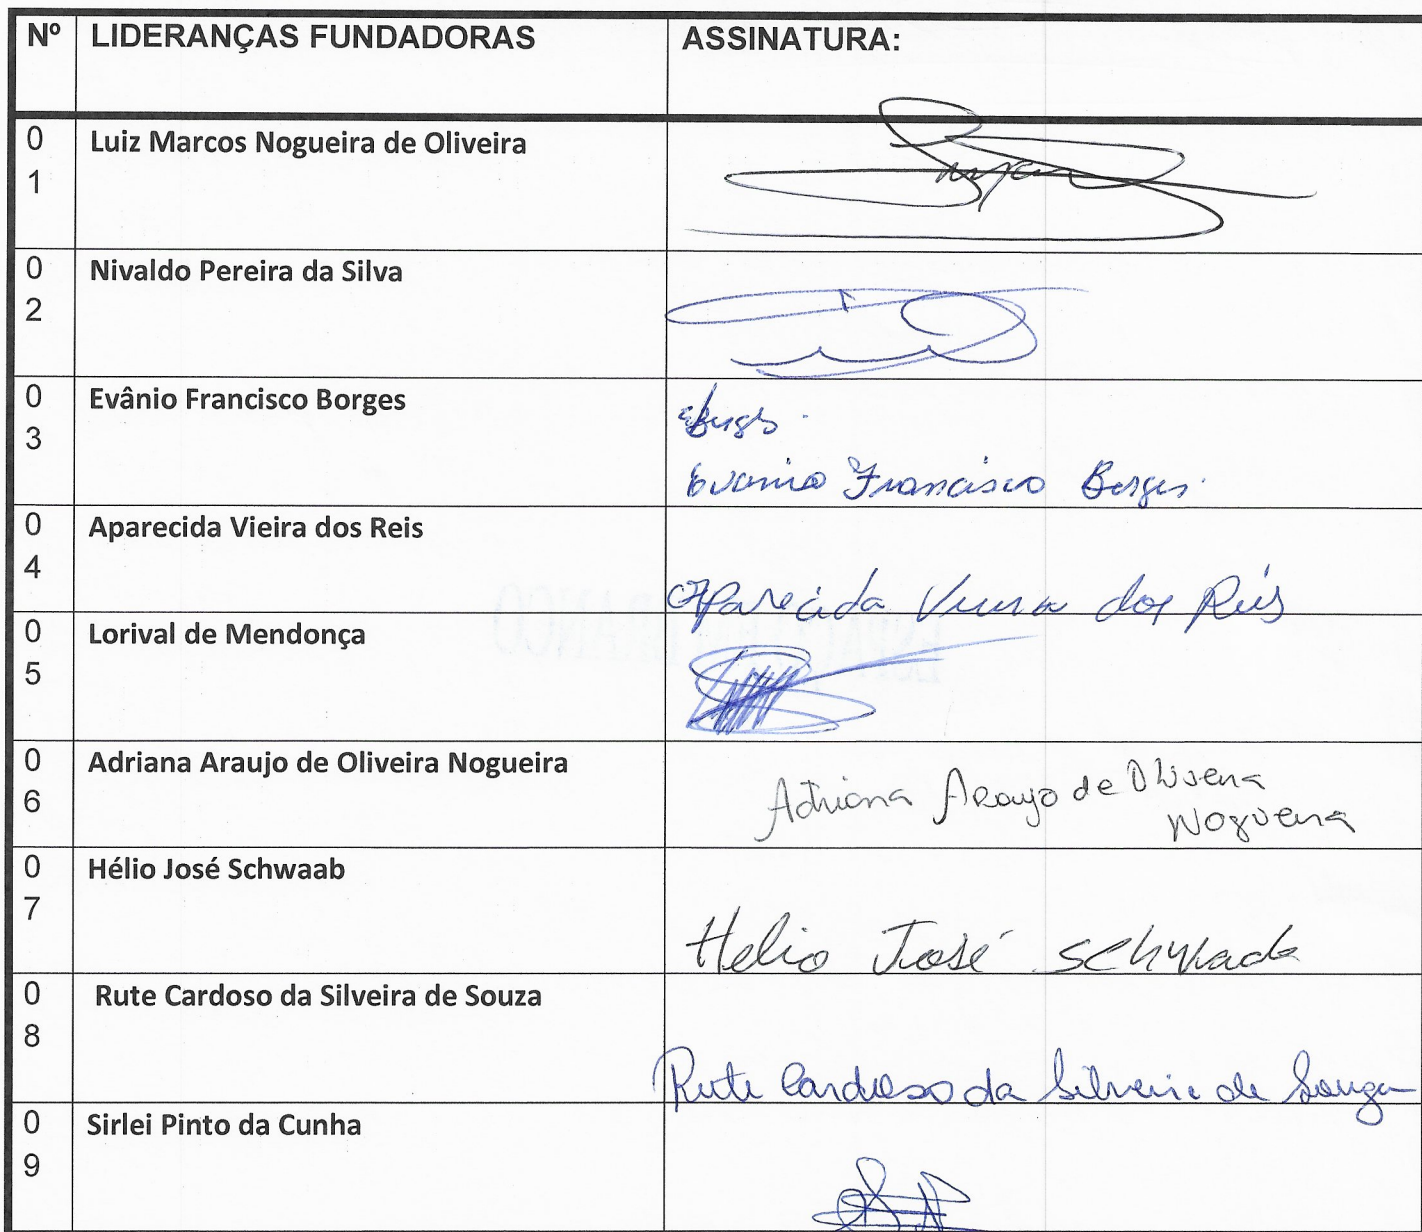 Nº LIDERANÇAS FUNDADORAS ASSINATURA:
01 Luiz Marcos Nogueira de Oliveira
02 Nivaldo Pereira da Silva
03 Evânio Francisco Borges
Evanio Francisco Borges
04 Aparecida Vieira dos Reis
Aparecida Vieira dos Reis
05 Lorival de Mendonça
06 Adriana Araujo de Oliveira Nogueira
Adriana Araujo de Oliveira
Nogueira
07 Hélio José Schwaab
Helio José Schwaab
08 Rute Cardoso da Silveira de Souza
Rute Cardoso da Silveira de Souza
09 Sirlei Pinto da Cunha